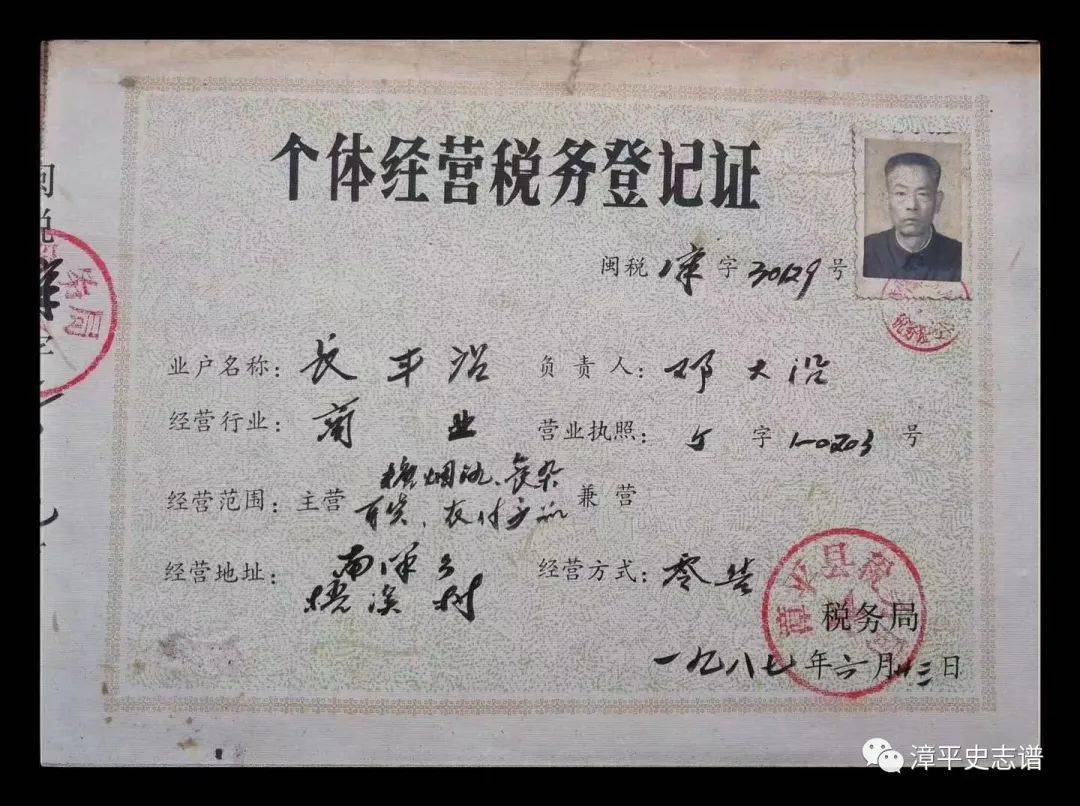 个体经营税务登记证
闽税 漳 字 30129 号
业户名称： 长丰 负责人： 邓大
经营行业： 商业 营业执照： 字 号
经营范围： 主营 烟酒、食杂 兼营
百货
经营地址： 南洋乡 经营方式： 零售
梧溪村
漳平县税务局
税务局
一九八七年六月 日
闽税
务局
漳平史志谱